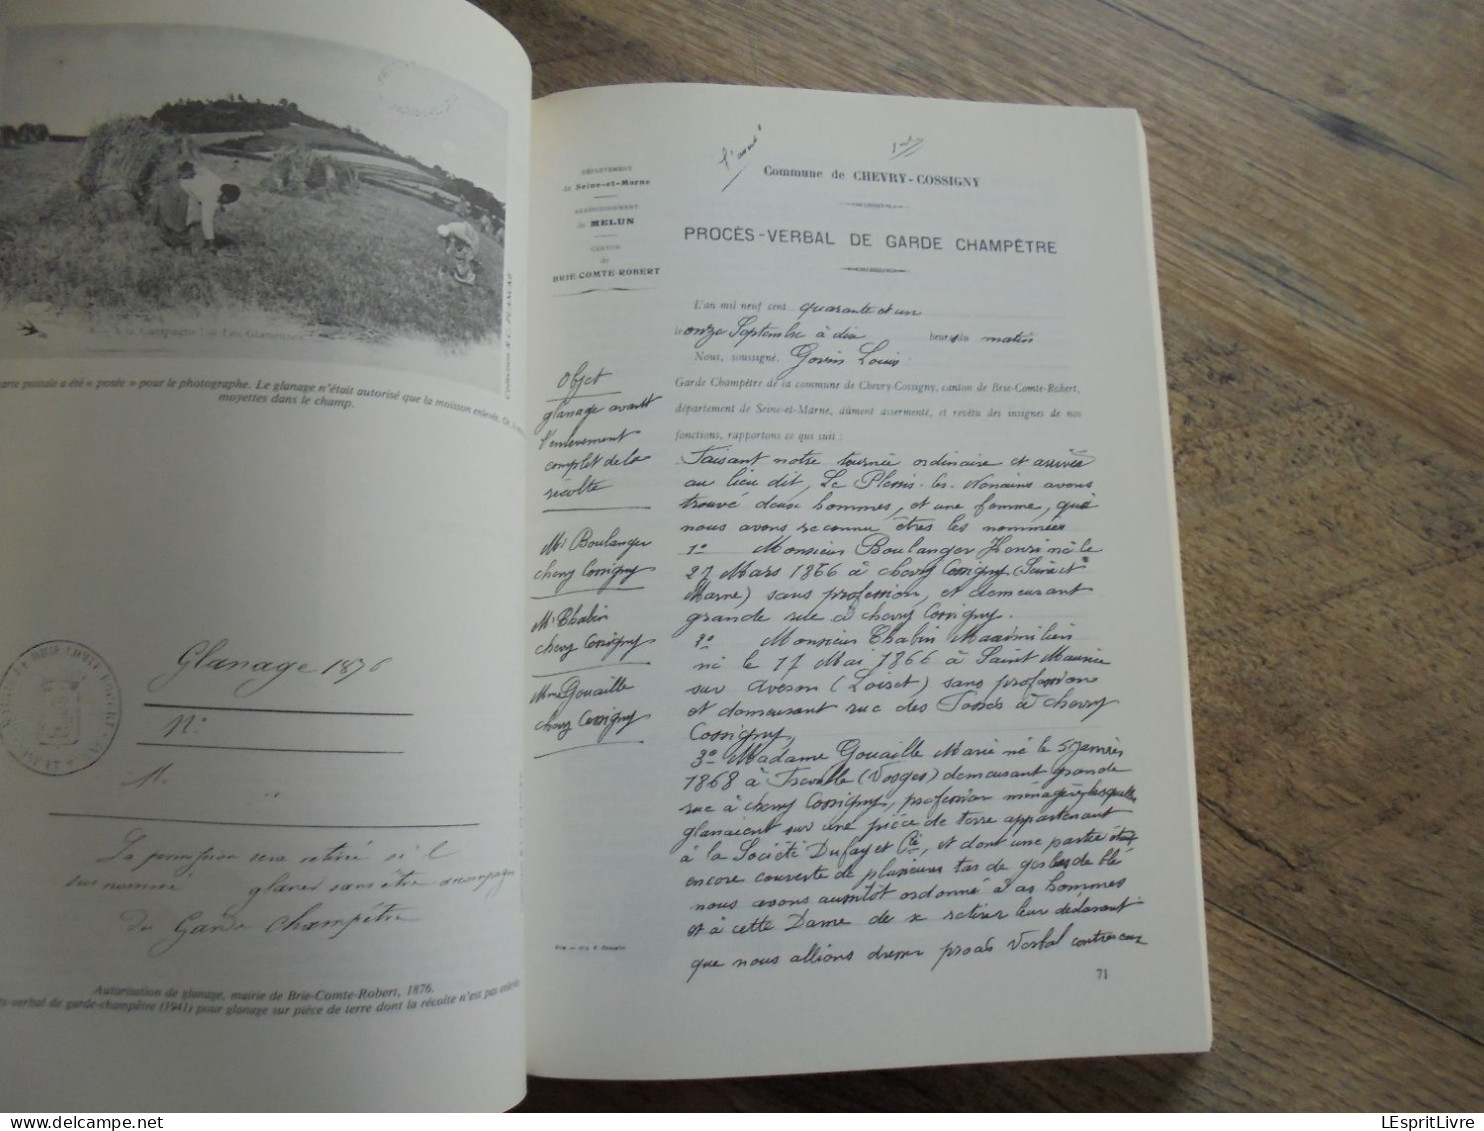 A la Campagne Les Glaneuses
carte postale a été « posée » pour le photographe. Le glanage n'était autorisé que la moisson enlevée. Or,
moyettes dans le champ.
Glanage 1876
N°
M.
La permission sera retiré si le
sus nommé glaner sans être accompagné
du Garde Champêtre
Autorisation de glanage, mairie de Brie-Comte-Robert, 1876.
ès-verbal de garde-champêtre (1941) pour glanage sur pièce de terre dont la récolte n'est pas enlevée
DÉPARTEMENT
de Seine-et-Marne
ARRONDISSEMENT
de MELUN
CANTON
de
BRIE-COMTE-ROBERT
Commune de CHEVRY-COSSIGNY
PROCÈS-VERBAL DE GARDE CHAMPÊTRE
L'an mil neuf cent quarante et un
le onze Septembre à dix heures du matin
Nous, soussigné, Govin Louis
Garde Champêtre de la commune de Chevry-Cossigny, canton de Brie-Comte-Robert,
département de Seine-et-Marne, dûment assermenté, et revêtu des insignes de nos
fonctions, rapportons ce qui suit :
Objet
glanage avant
l'enlevement
complet de la
récolte
Mr Boulanger
chevry Cossigny
Mr Thabin
chevry Cossigny
Mme Gouaille
chevry Cossigny
Faisant notre tournée ordinaire et arrivée
au lieu dit, Le Plessis-les-Nonains avons
trouvé deux hommes, et une femme, que
nous avons reconnu êtres les nommées
1° Monsieur Boulanger Henri né le
27 Mars 1866 à chevry Cossigny (Seine et
Marne) sans profession, et demeurant
grande rue à chevry Cossigny.
2° Monsieur Thabin Maximilien
né le 17 Mai 1866 à Saint Maurice
sur Averon (Loiret) sans profession
et demeurant rue des Fossés à chevry
Cossigny,
3° Madame Gouaille Marie né le 5 Janvier
1868 à (Vosges) demeurant grande
rue à chevry Cossigny, profession ménagère, lesquelles
glanaient sur une pièce de terre appartenant
à la Société Dufay et Cie, et dont une partie était
encore couverte de plusieurs tas de gerbes de blé
nous avons aussitôt ordonné à as hommes
et à cette Dame de se retirer leur déclarant
que nous allions dresser procès verbal contre eux
71
LEspritLivre